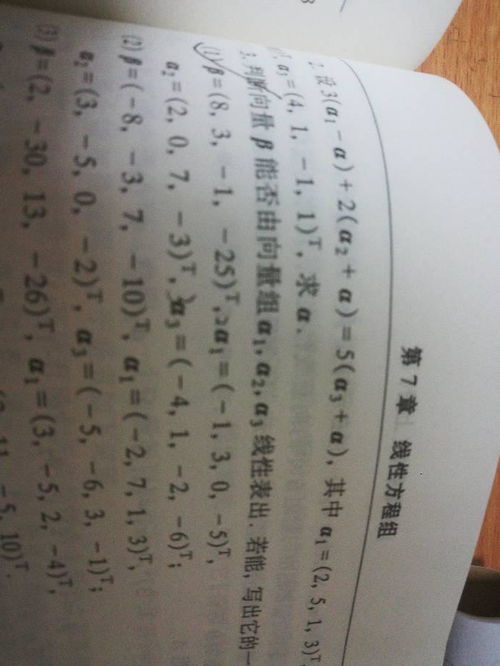 第 7 章 线性方程组
2. 设 3(α₁ − α) + 2(α₂ + α) = 5(α₃ + α), 其中 α₁ = (2, 5, 1, 3)ᵀ,
α₃ = (4, 1, −1, 1)ᵀ, 求 α.
3. 判断向量 β 能否由向量组 α₁, α₂, α₃ 线性表出. 若能, 写出它的一
(1) β = (8, 3, −1, −25)ᵀ, α₁ = (−1, 3, 0, −5)ᵀ,
α₂ = (2, 0, 7, −3)ᵀ, α₃ = (−4, 1, −2, −6)ᵀ;
(2) β = (−8, −3, 7, −10)ᵀ, α₁ = (−2, 7, 1, 3)ᵀ,
α₂ = (3, −5, 0, −2)ᵀ, α₃ = (−5, −6, 3, −1)ᵀ;
(3) β = (2, −30, 13, −26)ᵀ, α₁ = (3, −5, 2, −4)ᵀ,
−5, 10)ᵀ.